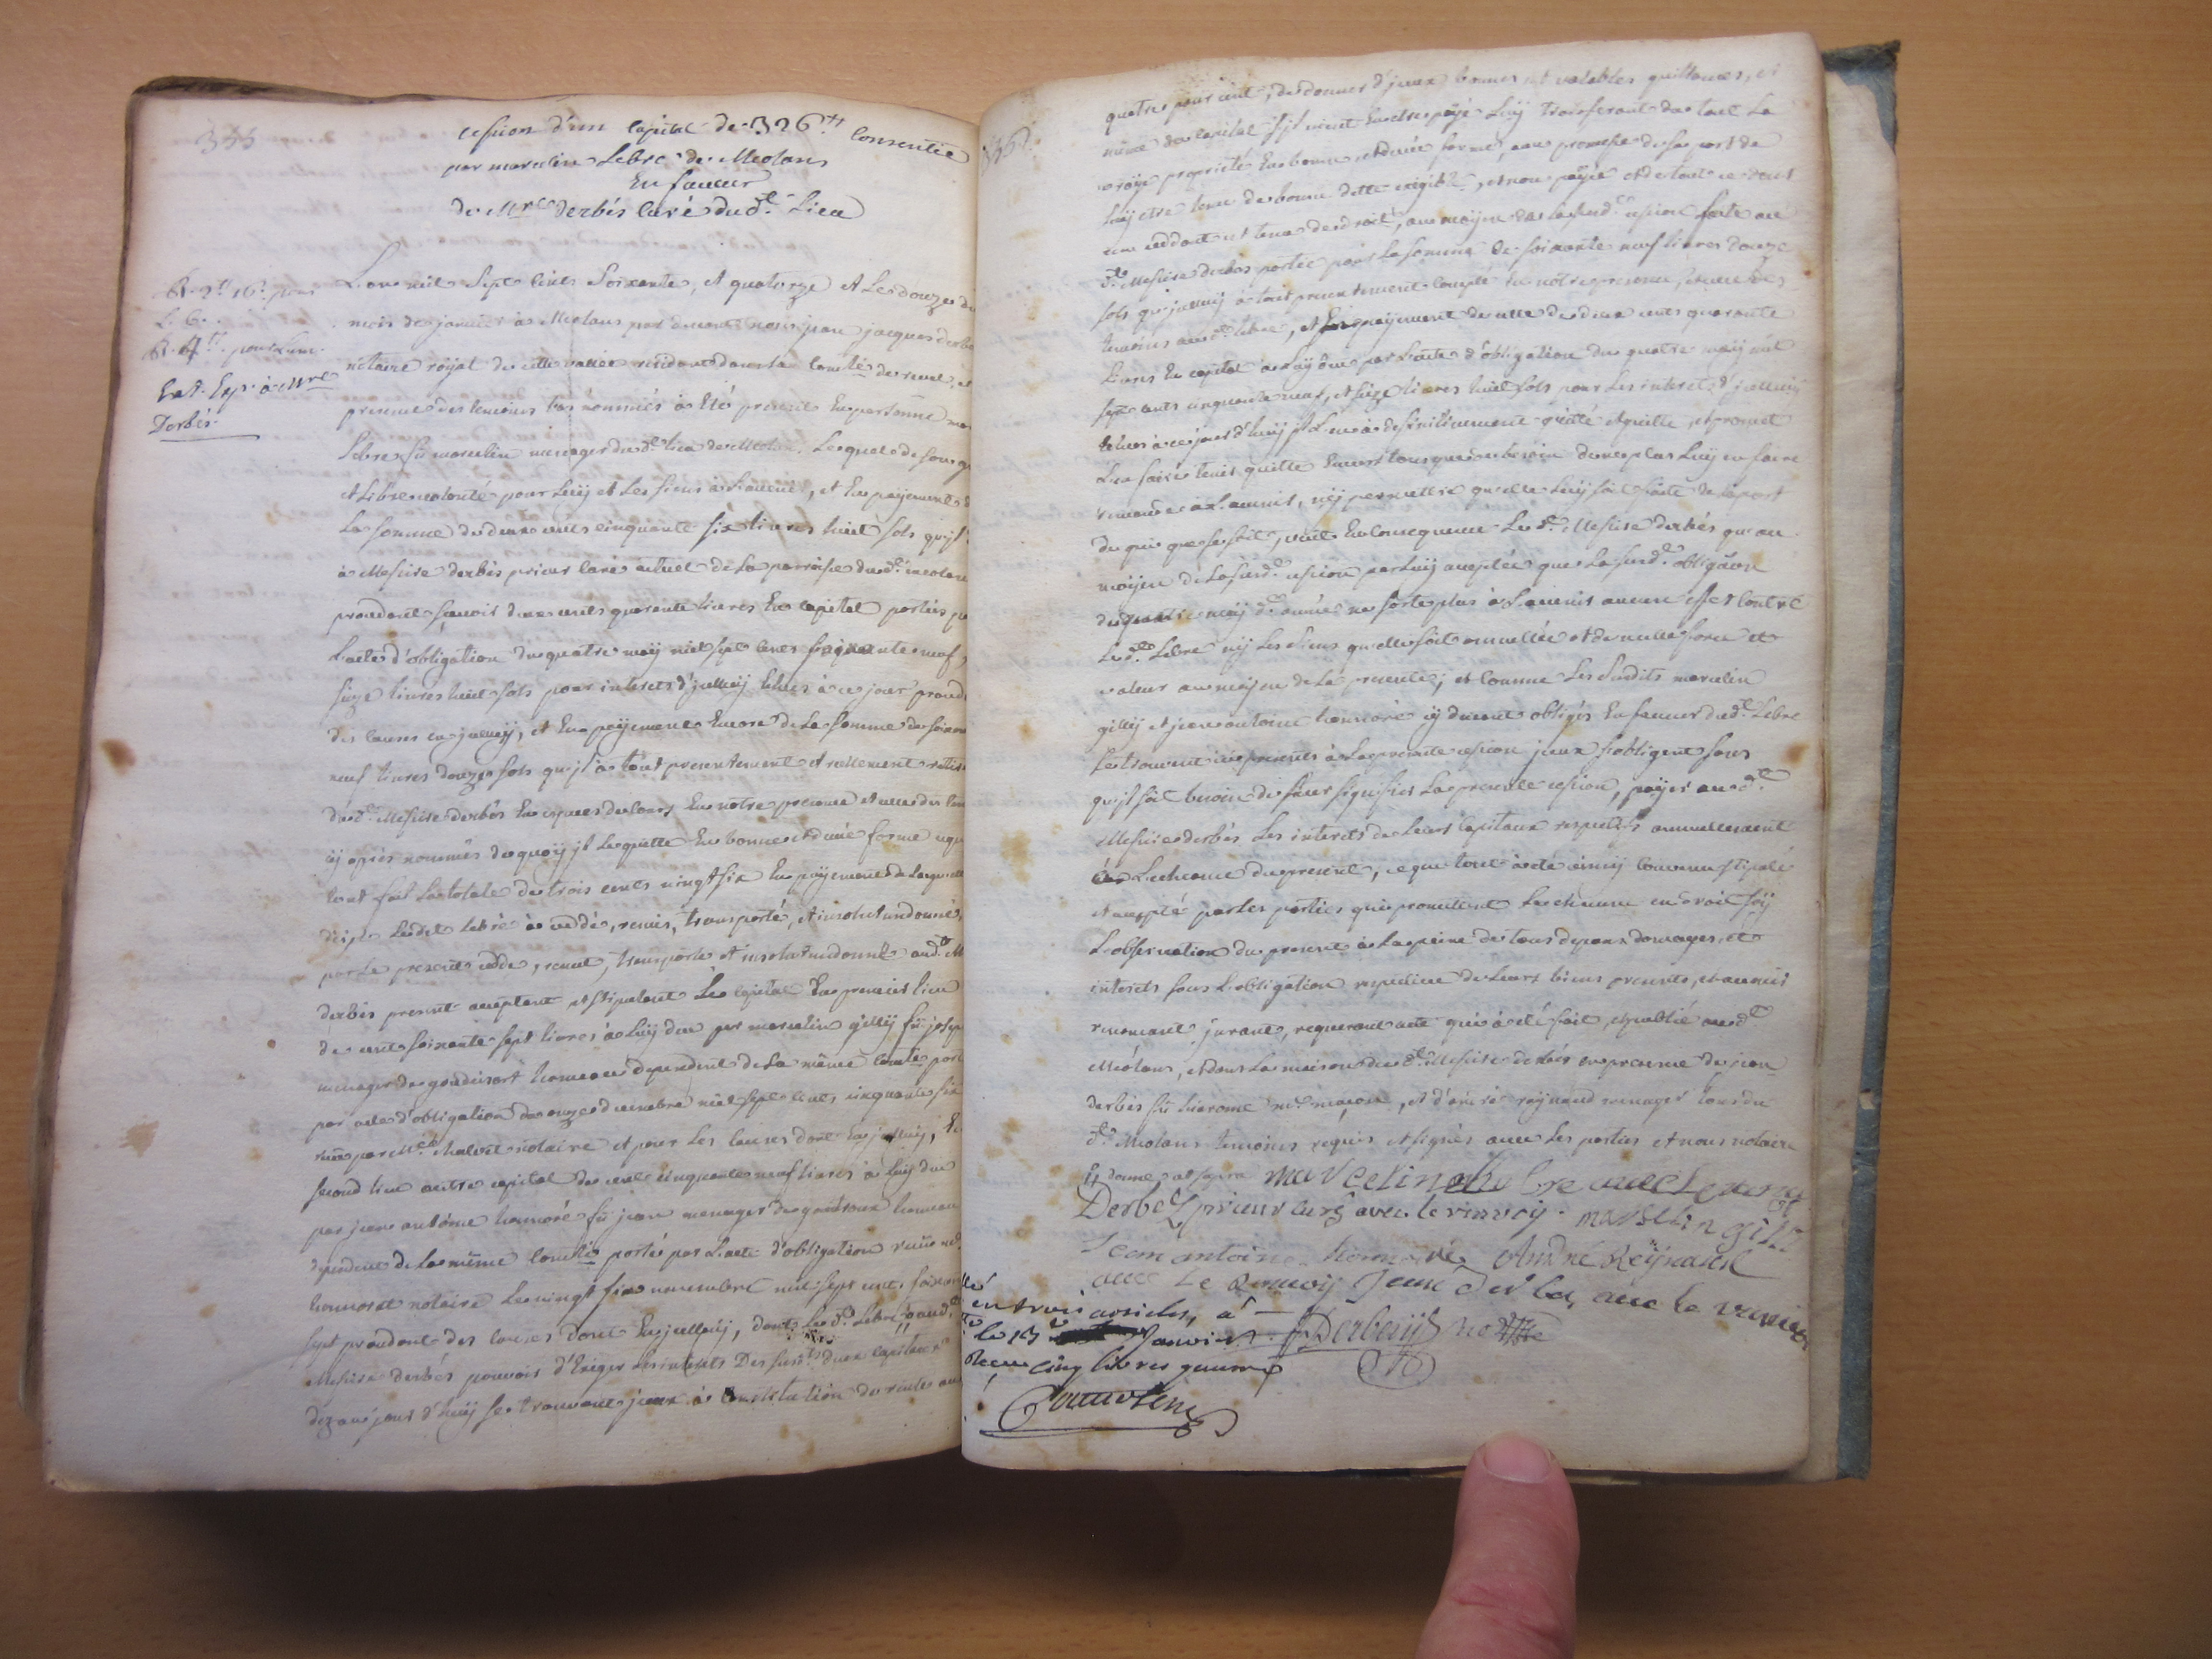 355
cession d'un capital de 326 ₶ consentie
par marcelin Lebre de Meolans
En faveur
de Mre derbés curé dud. Lieu
Ext. Exp. à Mre
Derbés
L'an mil Sept cents Soixante, et quatorze et Le douze du
mois de janvier à Meolans par devant nous jean jacques
notaire royal de cette vallée résident dans la comté de revel, et
presence des temoins bas nommés à Eté present En personne
Lebre fû marcelin menager dud. lieu de Meolans Lequel de son
et Libre volonté pour Luy et Les siens à L'avenir, et En payement
La somme de deux cents cinquante six livres huit sols qu'jl
à Messire derbés prieur curé actuel de La parroisse dud. meolans
provenant sçavoir deux cents quarante livres En capital portés
L'acte d'obligation du quatre may mil sept cents cinquante neuf,
seize livres huit sols pour interets d'jcelluy Echus à ce jour
des causes en jcelluy, et En payement Encore de La somme de
neuf livres douze sols qu'jl à tout presentement et réellement
dud. Messire derbés En especes de cours En notre presence et celle des
cy après nommés de quoy jl Le quitte En bonne et düe forme
tout fait La totale de trois cents vingt six En payement de
Ledit Lebre à ceddé, remis, transporté, et insolutumdonné,
par Le present cede, remet, transporte et insolutumdonne aud.
derbés present acceptant et stipulant Le capital En premier lieu
de cent soixante sept livres à Luy dû par marcelin gilly fû
menager de goudeissart hameau dependant de La même comté
par acte d'obligation du onze decembre mil sept cents cinquante six
par Me Malvet notaire et pour Les causes dont En jcelluy,
second lieu autre capital de cent cinquante neuf livres à Luy dû
par jean antoine honnoré fû jean menager de hameau
dependant de La même comté porté par L'acte d'obligation
honnorat notaire Le vingt six novembre mil sept cents
sept provenant des causes dont En jcelluy, dont Led. Lebre
Messire derbés pouvoir d'Exiger Les interets Des susd. deux capitaux
dez aujourd'huy se trouvant jceux à constitution de rente au
quatre pour cent, de donner d'jceux bonnes et valables quittances, et
même du capital s'jl vient En etre payé Luy transferant du tout La
vraye proprieté En bonne et düe forme, avec promesse de sa part de
Luy etre tenu de bonne dette exigible, et non payée et de tout ce dont
un ceddant est tenu de droit, au moyen de La susd. cession faite au
d. Messire derbés portée pour La somme de soixante neuf livres douze
sols que jcelluy à tout presentement compté En notre presence, et celle des
temoins aud. Lebre, et En payement de celle de deux cents quarante
Livres En capital à Luy düe par L'acte d'obligation du quatre may mil
sept cents cinquante neuf, et seize livres huit sols pour Les interets d'jcelluy
Echus à ce jourd'huy jl L'en à definitivement quitté et quitte, et promet
L'en faire tenir quitte Envers tous que de besoin de ne plus Luy en faire
demande à L'avenir, ny permettre qu'elle Luy soit faite de La part
de qui que ce soit, veut En consequence Led. Messire derbés qu'au
moyen de La susd. cession par Luy acceptée que La susd. obligâon
du quatre may d. année ne sorte plus à L'avenir aucun effet contre
Led. Lebre ny Les siens qu'elle soit annullée et de nulle force et
valeur au moyen de La presente; et comme Les Susdits marcelin
gilly et jean antoine honnoré cy devant obligés En faveur dud. Lebre
se trouvent jci presents à La presente cession jceux s'obligent sans
qu'jl soit besoin de faire signifier La presente cession, payer aud.
Messire derbés Les interets de Leurs capitaux respectifs annuellement
à L'echeance du present, ce que tout à été ainsy convenu stipulé
et accepté par Les parties qui promettent Le chacun en droit soy
L'observation du present à La peine de tous depens domages, et
interets sous L'obligation respective de Leurs biens presents, et avenir
renoncant, jurant, requerant acte qui à eté fait, et publié aud.
Meolans, et dans La maison dud. Messire derbés en presence de jean
derbés fû hierome me maçon, et d'andré reynaud menager tous du
d. Meolans temoins requis et signés avec Les parties et nous notaire
marcelin lebre avec le renvoy
Derbez prieur curé avec le renvoy. marselin gilli
jean antoine honnoré André Reynaud
avec le renvoy Jean Derbes avec le renvoy
en trois articles, à
le 13 janvier
Reçu cinq livres quinze
Derbeys notre